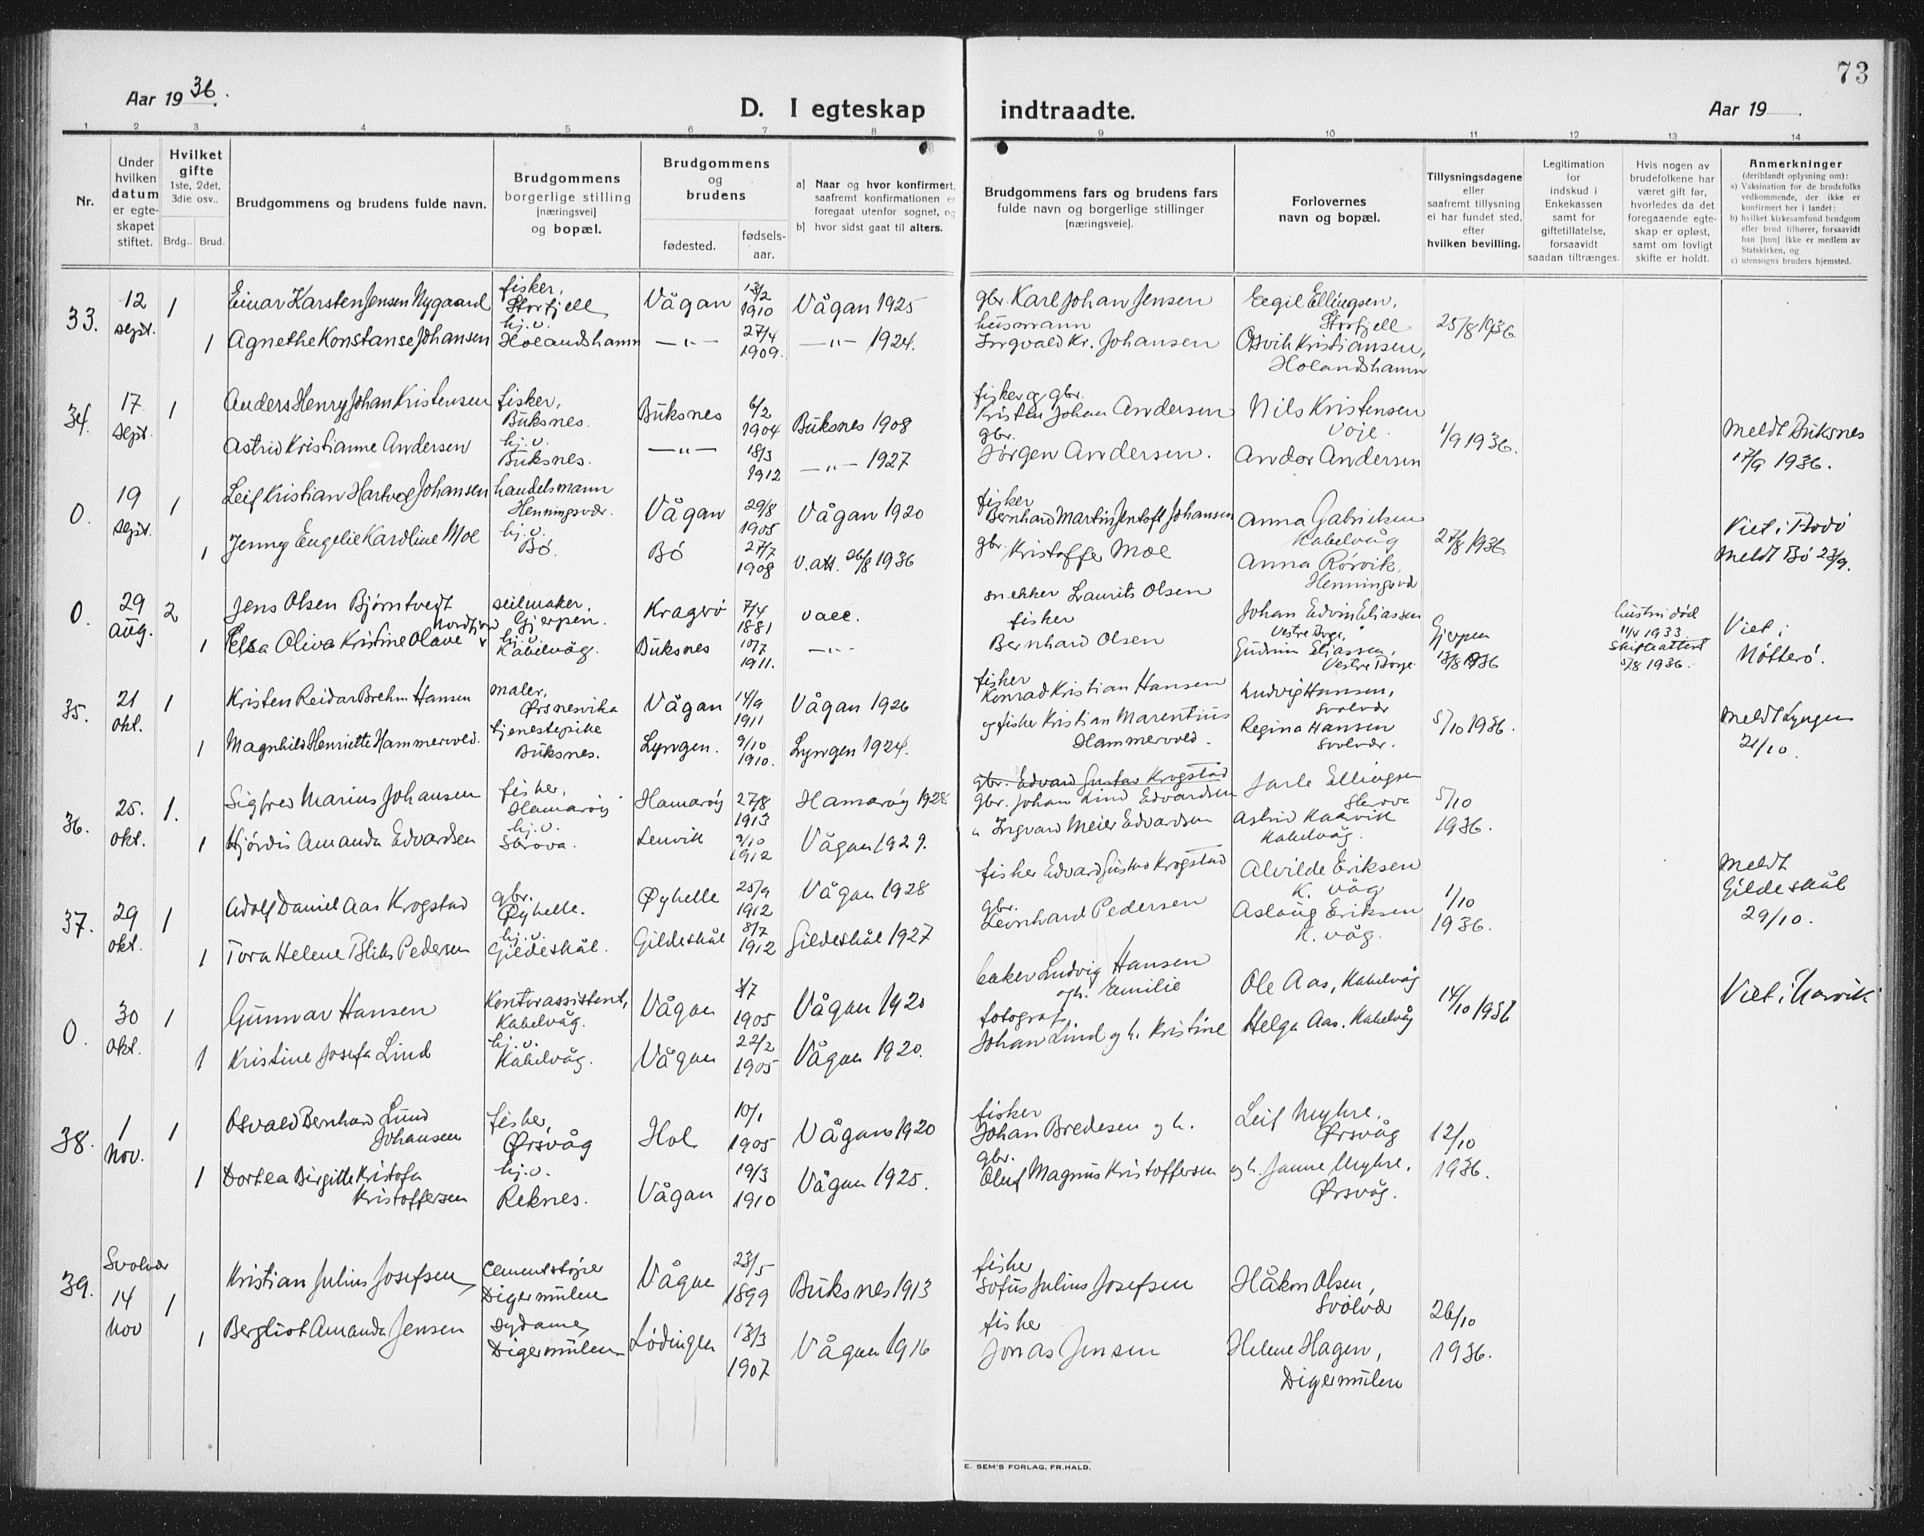 73
Aar 1936.
D. I egteskap indtraadte.
Aar 19 .
1 2 3 4 5 6 7 8 9 10 11 12 13 14
Nr.
Under hvilken datum er egteskapet stiftet.
Hvilket gifte 1ste, 2det, 3dje osv..
Brdg.. Brud.
Brudgommens og brudens fulde navn.
Brudgommens borgerlige stilling [næringsvei] og bopæl.
Brudgommens og brudens
fødested.
fødselsaar.
a) Naar og hvor konfirmert, saafremt konfirmationen er foregaat utenfor sognet, og
b) hvor sidst gaat til alters.
Brudgommens fars og brudens fars fulde navn og borgerlige stillinger [næringsvei].
Forlovernes navn og bopæl.
Tillysningsdagene eller saafremt tillysning ei har fundet sted, efter hvilken bevilling.
Legitimation for indskud i Enkekassen samt for giftetillatelse, forsaavidt saadan tiltrænges.
Hvis nogen av brudefolkene har været gift før, hvorledes da det foregaaende egteskap er opløst, samt om lovligt skifte er holdt.
Anmerkninger (deriblandt oplysning om):
a) Vaksination for de brudefolks vedkommende, der ikke er konfirmert her i landet;
b) hvilket kirkesamfund brudgom eller brud tilhører, forsaavidt han [hun] ikke er medlem av Statskirken, og
c) utensogns bruders hjemsted.
33. 12 sept. 1 Einar Karsten Jensen Nygaard fisker, Storfjell Vågan 13/2 1910 Vågan 1925 gbr. Karl Johan Jensen Eegil Ellingsen, Storfjell 25/8 1936
1 Agnethe Konstanse Johansen hj.v. Holandshamn —"— 27/4 1909. —"— 1924. husmann Ingvald Kr. Johansen Osvik Kristiansen, Holandshamn
34. 17 sept. 1 Anders Henry Johan Kristensen fisker, Buksnes. Buksnes 6/2 1904 Buksnes 1908 fisker og gbr. Kristen Johan Andersen Nils Kristensen Voje. 1/9 1936. Meldt Buksnes 17/9 1936.
Astrid Kristianne Andersen hj.v. Buksnes. —"— 18/3 1912 —"— 1927 gbr. Jørgen Andersen. Andor Andersen
0. 19 sept. 1 Leif Kristian Hartvog Johansen handelsmann Henningsvær. Vågan 29/8 1905 Vågan 1920 fisker Bernhard Martin Jentoft Johansen Anna Gabrielsen Kabelvåg 27/8 1936 Viet i Bodø
1 Jenny Engelie Karoline Moe hj.v. Bø. Bø 27/7 1908 v.att. 26/8 1936 gbr. Kristoffer Moe Anna Rørvik, Henningsvær Meldt Bø 23/9.
0. 29 aug. 2 Jens Olsen Bjørntvedt seilmaker, Gjerpen. Kragerø 7/4 1881 vacc. snekker Laurits Olsen Johan Edvin Eliassen Vestre Borge, Gjerpen 13/8 1936 hustru død 11/4 1933 Skifteattest 5/8 1936. Viet i Nøtterø.
1 Elsa Oliva Kristine Olave hj.v. Kabelvåg. Buksnes 10/7 1911. —"— fisker Bernhard Olsen Gudrun Eliassen, Vestre Borge
35. 21 okt. 1 Kristen Reidar Brehm Hansen maler, Ørsnesvika Vågan 14/9 1911 Vågan 1926 fisker Konrad Kristian Hansen Ludvig Hansen, Svolvær 5/10 1936. Meldt Lyngen 21/10.
1 Magnhild Henriette Hammervold. tjenestepike Buksnes. Lyngen. 9/10 1910. Lyngen 1924. og fisker Kristian Marentius Hammervold. Regina Hansen Svolvær.
36. 25. okt. 1. Sigfred Marius Johansen fisker, Hamarøy Hamarøy 27/8 1913 Hamarøy 1928 gbr. Edvard Gustav Krogstad gbr. Johan Lind Edvardsen Jarle Ellingsen Skrova 5/10 1936.
1 Hjördis Amanda Edvardsen hj.v. Skrova. Lenvik 9/10 1912 Vågan 1929. " Ingvard Meier Edvardsen Astrid Kaarvik Kabelvåg.
37. 29 okt. 1 Adolf Daniel Aas Krogstad gbr. Øyhelle. Øyhelle 25/9 1912 Vågan 1928 fisker Edvard Gustav Krogstad Alvilde Eriksen K. våg 1/10 1936. Meldt Gildeskål 29/10.
1 Tora Helene Bliks Pedersen hj.v. Gildeskål. Gildeskål 8/7 1912 Gildeskål 1927 gbr. Leonhard Pedersen Aslaug Eriksen K. våg.
0. 30 okt. 1 Gunnar Hansen Kontorassistent, Kabelvåg. Vågan 3/7 1905 Vågan 1920 baker Ludvig Hansen og h. Emilie Ole Aas, Kabelvåg 14/10 1936 Viet i Narvik
1 Kristine Josefa Lind hj.v. Kabelvåg. Vågan 22/2 1905 Vågan 1920. fotograf Johan Lind og h. Kristine Helga Aas. Kabelvåg
38. 1 Nov. 1 Osvald Bernhard Lund Johansen fisker, Ørsvåg Hol 10/1 1905 Vågan 1920 fisker Johan Bredesen og h. Leif Myhre, Ørsvåg 12/10 1936.
1 Dortea Birgitte Kristofa Kristoffersen hj.v. Reknes. Vågan 19/3 1910 Vågan 1925. gbr. Oluf Magnus Kristoffersen og h. Janne Myhre, Ørsvåg.
39. Svolvær 14 Nov 1 Kristian Julius Josefsen Cementstøper Digermulen Vågan 23/5 1899 Buksnes 1913 fisker Sofus Julius Josefsen Håkon Olsen, Svolvær 26/10 1936.
1 Bergliot Amanda Jensen Sydame, Digermulen Lødingen 13/3 1907 Vågan 1916 fisker Jonas Jensen Helene Hagen, Digermulen
E. SEM'S FORLAG, FR.HALD.